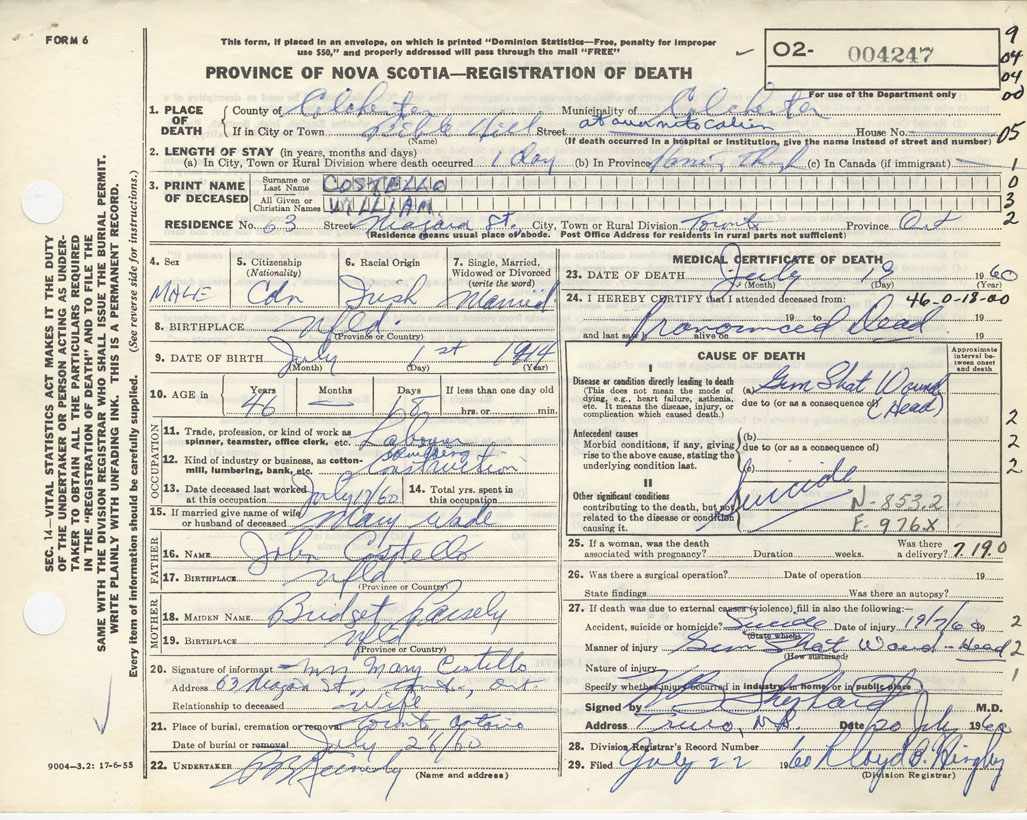 FORM 6
This form, if placed in an envelope, on which is printed "Dominion Statistics—Free, penalty for improper
use $50," and properly addressed will pass through the mail "FREE"
O2- 004247
For use of the Department only
9
04
04
00
05
1
0
3
2
PROVINCE OF NOVA SCOTIA—REGISTRATION OF DEATH
1. PLACE OF DEATH
County of Colchester Municipality of Colchester
If in City or Town Hill Street at House No.
(Name) (If death occurred in a hospital or institution, give the name instead of street and number)
2. LENGTH OF STAY (in years, months and days)
(a) In City, Town or Rural Division where death occurred 1 day (b) In Province (c) In Canada (if immigrant) —
3. PRINT NAME OF DECEASED
Surname or Last Name COSTELLO
All Given or Christian Names WILLIAM
RESIDENCE No. 63 Street St. City, Town or Rural Division Province Ont
(Residence means usual place of abode. Post Office Address for residents in rural parts not sufficient)
4. Sex
MALE
5. Citizenship
(Nationality)
Cdn
6. Racial Origin
Irish
7. Single, Married,
Widowed or Divorced
(write the word)
Married
8. BIRTHPLACE Nfld.
(Province or Country)
9. DATE OF BIRTH July 1st 1914
(Month) (Day) (Year)
10. AGE in
Years 46
Months —
Days 18
If less than one day old
hrs. or min.
OCCUPATION
11. Trade, profession, or kind of work as
spinner, teamster, office clerk, etc. Labourer
12. Kind of industry or business, as cotton-
mill, lumbering, bank, etc. Construction
13. Date deceased last worked
at this occupation July 17/60
14. Total yrs. spent in
this occupation
15. If married give name of wife
or husband of deceased Mary Wade
FATHER
16. NAME John Costello
17. BIRTHPLACE Nfld
(Province or Country)
MOTHER
18. MAIDEN NAME Bridget
19. BIRTHPLACE Nfld
(Province or Country)
20. Signature of informant Mrs Mary Costello
Address 63 St., Ont.
Relationship to deceased wife
21. Place of burial, cremation or removal Ontario
Date of burial or removal July 26/60
22. UNDERTAKER
(Name and address)
MEDICAL CERTIFICATE OF DEATH
23. DATE OF DEATH July 19 1960
(Month) (Day) (Year)
24. I HEREBY CERTIFY that I attended deceased from: 46-0-18-00
19 to 19
and last saw alive on 19
Pronounced Dead
CAUSE OF DEATH
Approximate
interval be-
tween onset
and death
I
Disease or condition directly leading to death
(This does not mean the mode of
dying, e.g., heart failure, asthenia,
etc. It means the disease, injury, or
complication which caused death.)
(a) Gun Shot Wound
due to (or as a consequence of) (Head)
Antecedent causes
Morbid conditions, if any, giving
rise to the above cause, stating the
underlying condition last.
(b)
due to (or as a consequence of)
(c)
2
2
2
II
Other significant conditions
contributing to the death, but not
related to the disease or condition
causing it.
Suicide
N-853.2
E-976.X
25. If a woman, was the death
associated with pregnancy? Duration weeks. Was there
a delivery? 7.19.0
26. Was there a surgical operation? Date of operation 19
State findings Was there an autopsy?
27. If death was due to external causes (violence) fill in also the following:
Accident, suicide or homicide? Suicide Date of injury 19/7/60 2
(State which)
Manner of injury Gun Shot Wound - Head 2
(How sustained)
Nature of injury 1
Specify whether injury occurred in industry, in home, or in public place
Signed by M.D.
Address Truro, N.S. Date 20 July 1960
28. Division Registrar's Record Number
29. Filed July 22 1960 Lloyd
(Division Registrar)
SEC. 14—VITAL STATISTICS ACT MAKES IT THE DUTY
OF THE UNDERTAKER OR PERSON ACTING AS UNDER-
TAKER TO OBTAIN ALL THE PARTICULARS REQUIRED
IN THE "REGISTRATION OF DEATH" AND TO FILE THE
SAME WITH THE DIVISION REGISTRAR WHO SHALL ISSUE THE BURIAL PERMIT.
WRITE PLAINLY WITH UNFADING INK. THIS IS A PERMANENT RECORD.
Every item of information should be carefully supplied. (See reverse side for instructions.)
9004-3.2: 17-6-55